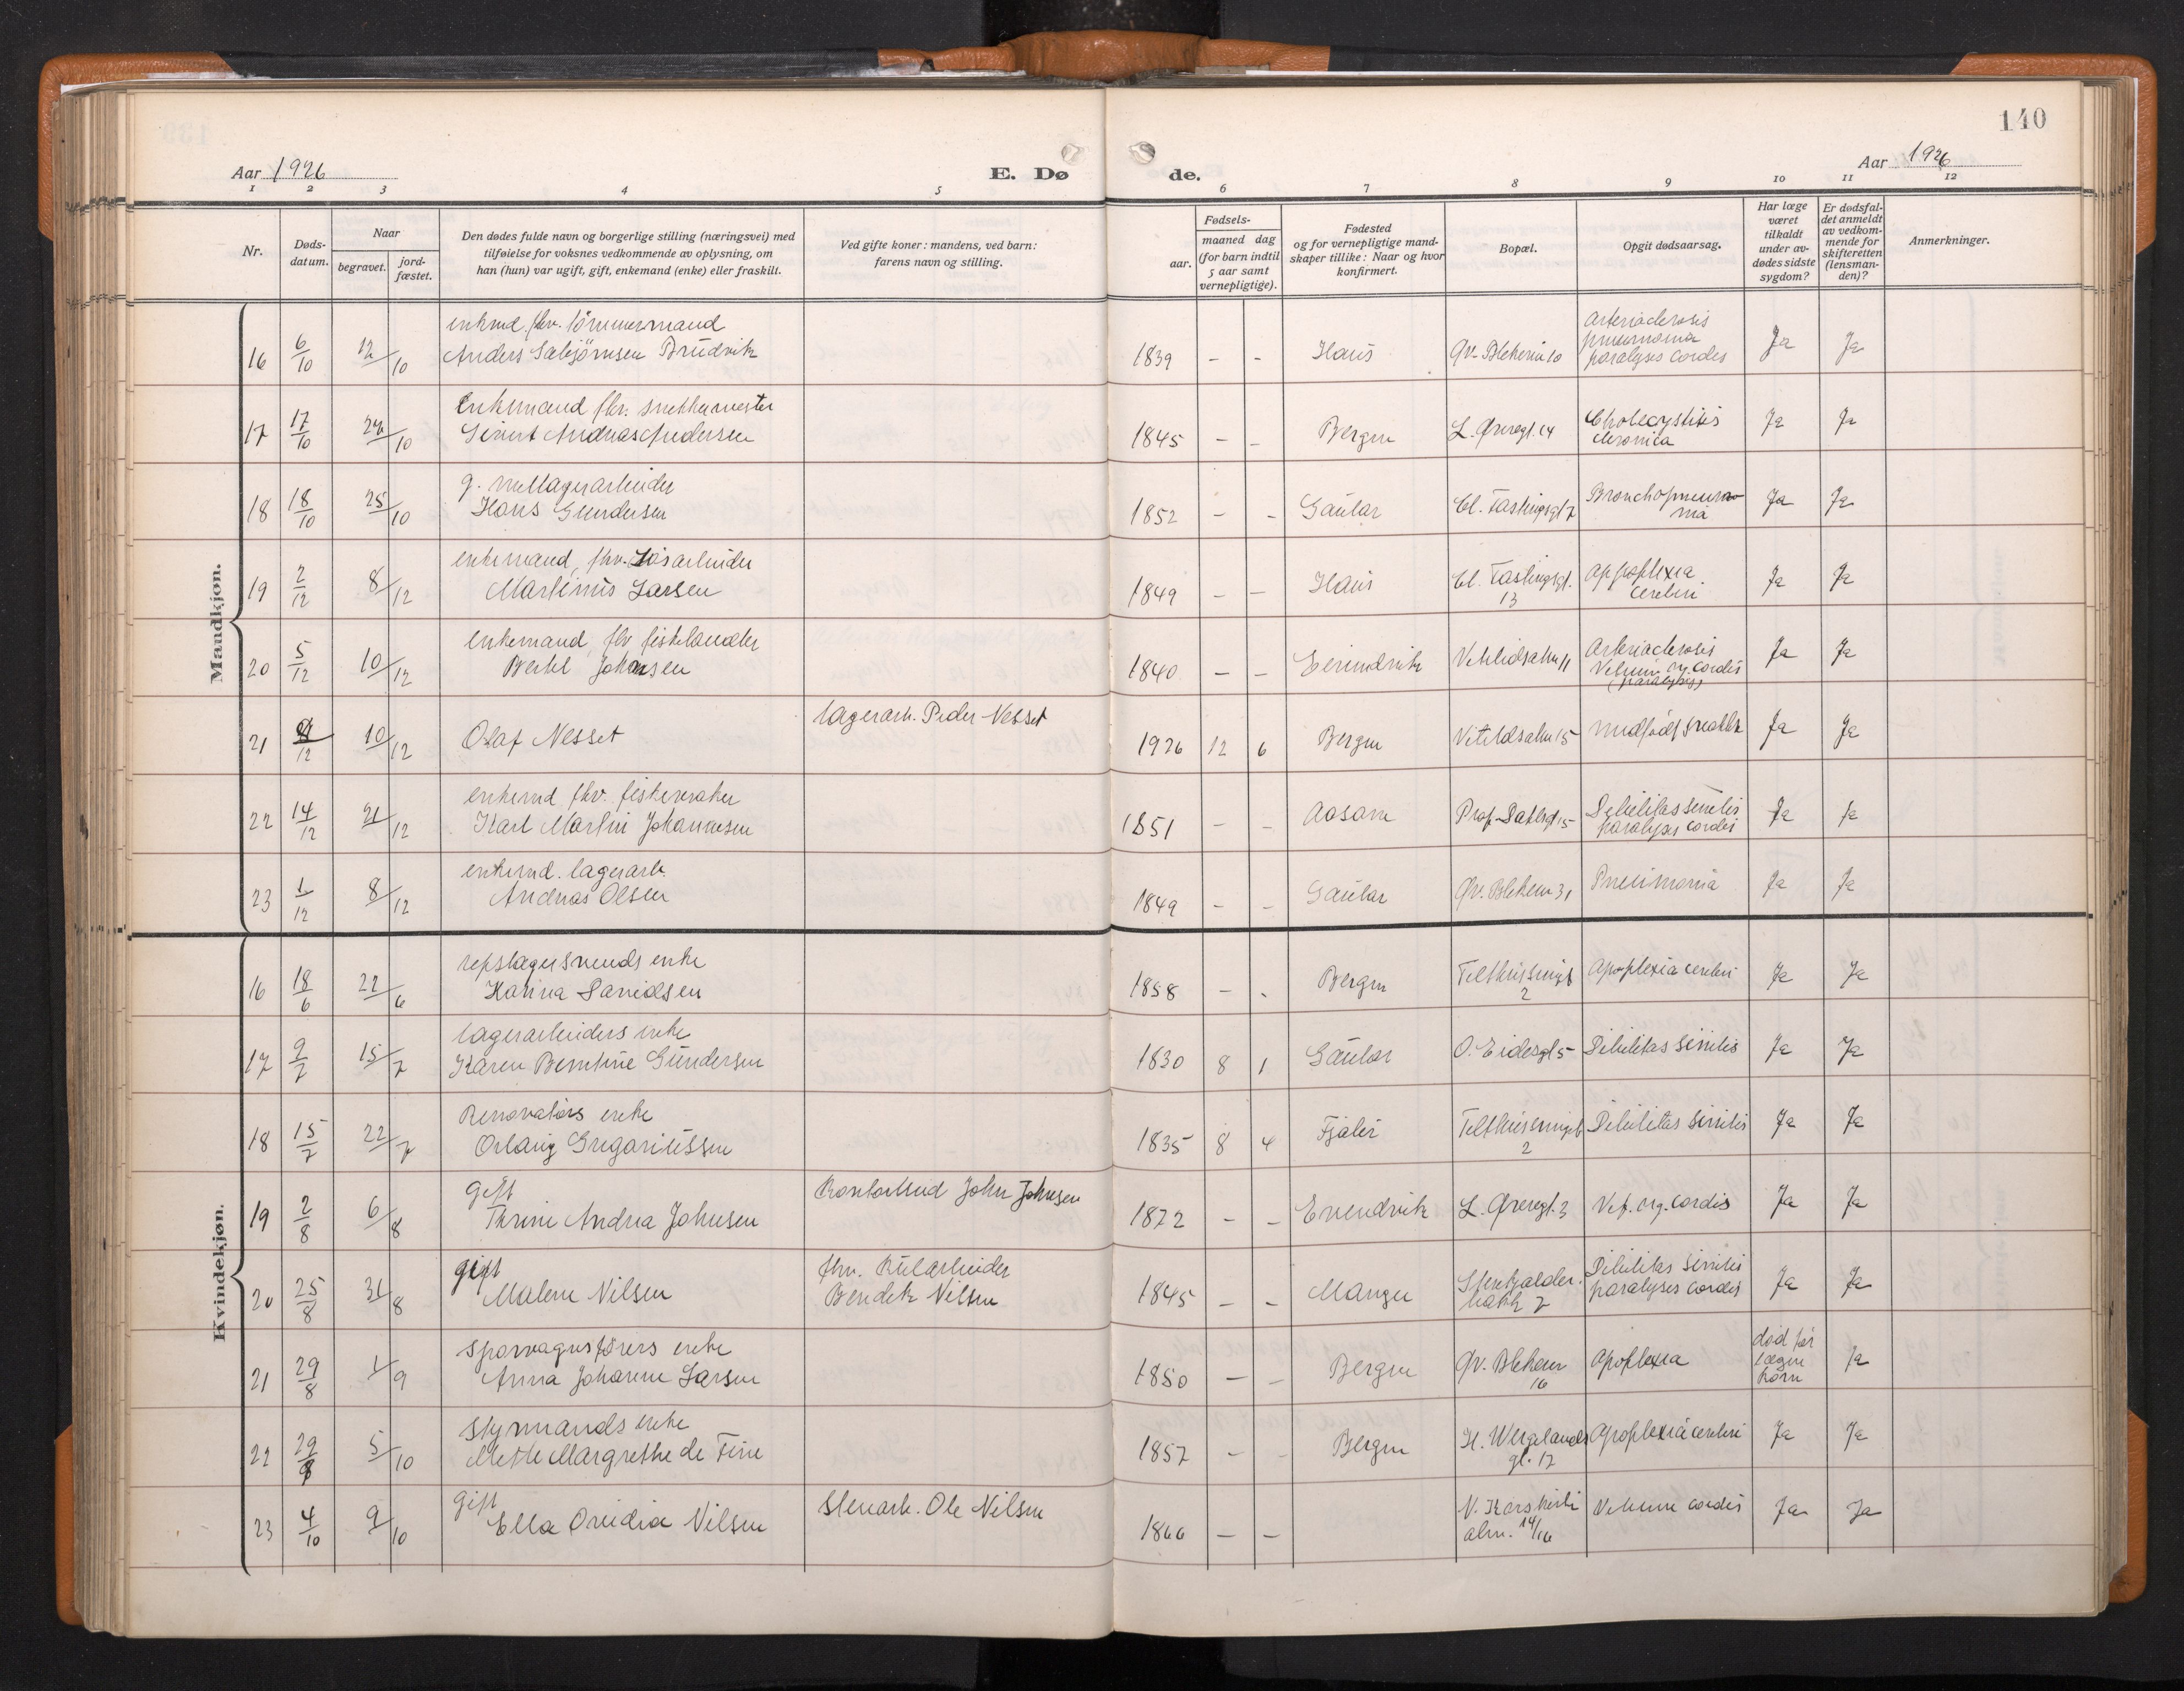 140
Aar 1926
E. Dø
de.
Aar 1926
1 2 3 4 5 6 7 8 9 10 11 12
Nr.
Døds-
datum.
Naar
begravet.
jord-
fæstet.
Den dødes fulde navn og borgerlige stilling (næringsvei) med
tilføielse for voksnes vedkommende av oplysning, om
han (hun) var ugift, gift, enkemand (enke) eller fraskilt.
Ved gifte koner: mandens, ved barn:
farens navn og stilling.
Fødsels-
aar.
maaned dag
(for barn indtil
5 aar samt
vernepligtige).
Fødested
og for vernepligtige mand-
skaper tillike: Naar og hvor
konfirmert.
Bopæl.
Opgit dødsaarsag.
Har læge
været
tilkaldt
under av-
dødes sidste
sygdom?
Er dødsfal-
det anmeldt
av vedkom-
mende for
skifteretten
(lensman-
den)?
Anmerkninger.
Mandkjøn.
enkmd. fhv. tömmermand
16 6/10 12/10 Anders Sæbjörnsen Brudvik 1839 - - Haus Øv. Blekevei 10 Arteriosclerosis
pneumonia
paralyses cordis Ja Ja
Enkemand fhv. snekkermester
17 17/10 24/10 Sivert Andreas Andersen 1845 - - Bergen L. Øvregt. 14 Cholecystitis
chronica Ja Ja
g. lagerarbeider
18 18/10 25/10 Hans Gundersen 1852 - - Gaular Cl. Fastingsgt 7 Bronchopneumo-
nia Ja Ja
enkemand, fhv. Løsarbeider
19 2/12 8/12 Martinus Larsen 1849 - - Haus Cl. Fastingsgt.
13 Appoplexia
cerebri Ja Ja
enkemand, fhv fiskehandler
20 5/12 10/12 Bertel Johansen 1840 - - Evindvik 11 Arteriosclerosis
Vitium org. cordis
(paralysis) Ja Ja
21 /12 10/12 Olaf Nesset lagerarb. Peder Nesset 1926 12 6 Bergen 15 medfødt svakhet Ja Ja
enkemd fhv. fiskevraker
22 14/12 21/12 Karl Martin Johannesen 1851 - - Prof. Dahlsgt 15 Debilitas senilis
paralyses cordis Ja Ja
enkemd. lagerarb.
23 1/12 8/12 Andreas Olsen 1849 - - Gaular Øv. Blekevei 31 Pneumonia Ja Ja
Kvindekjøn.
repslagersvends enke
16 18/6 22/6 Hanna Danielsen 1858 - - Bergen
2 Apoplexia cerebri Ja Ja
lagerarbeiders enke
17 9/7 15/7 Karen Berntine Gundersen 1830 8 1 Gaular O. Eidesgt 5 Debilitas senilis Ja Ja
Renovatörs enke
18 15/7 22/7 Orlaug Gregoriussen 1835 8 4 Fjaler
2 Debilitas senilis Ja Ja
gift
19 2/8 6/8 Thrine Andrea Johnsen Kontorbud John Johnsen 1872 - - Evendvik L. Øvregt. 3 Vit. org. cordis Ja Ja
gift
20 25/8 31/8 Malene Nilsen fhv. Kularbeider
Bendik Nilsen 1845 - - Manger Stenkjelder-
bakk 7 Debilitas senilis
paralyses cordis Ja Ja
Sporvagnsförers enke
21 29/8 1/9 Anna Johanne Larsen 1850 - - Bergen Øv. Blekevei
16 Apoplexia død før
lægen
kom Ja
Styrmands enke
22 29/9 5/10 Mette Margrethe de Fine 1857 - - Bergen H. Wergelands
gt. 17 Apoplexia cerebri Ja Ja
gift
23 4/10 9/10 Ella Ovidia Nilsen Stenarb. Ole Nilsen 1866 - - N. Korskirke
alm. 14/16 Vitium cordis Ja Ja